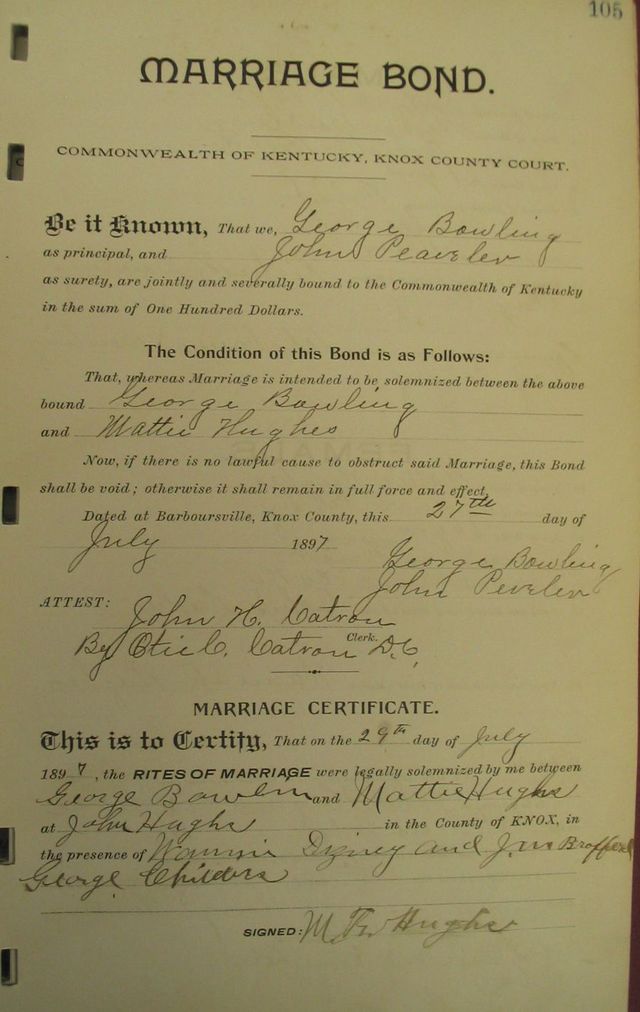 105
MARRIAGE BOND.
COMMONWEALTH OF KENTUCKY, KNOX COUNTY COURT.
Be it Known, That we, George Bowling
as principal, and John Peaveler
as surety, are jointly and severally bound to the Commonwealth of Kentucky
in the sum of One Hundred Dollars.
The Condition of this Bond is as Follows:
That, whereas Marriage is intended to be solemnized between the above
bound George Bowling
and Mattie Hughes
Now, if there is no lawful cause to obstruct said Marriage, this Bond
shall be void; otherwise it shall remain in full force and effect.
Dated at Barboursville, Knox County, this 27th day of
July 1897
George Bowling
John Peveler
ATTEST: John H. Catron
Clerk.
By Otis C. Catron D.C.
MARRIAGE CERTIFICATE.
This is to Certify, That on the 29th day of July
1897, the RITES OF MARRIAGE were legally solemnized by me between
George Bowlin and Mattie Hughs
at John Hughs in the County of KNOX, in
the presence of Dizney and Jim
George Childers
SIGNED: Hughs